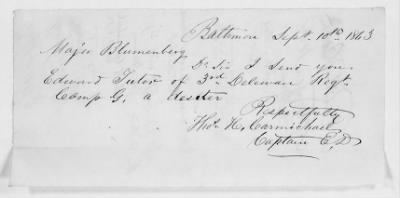 Baltimore Sept. 10th 1863
Major Blumenberg
Dr Sir I send you
Edward Tutor of 3rd Deleware Regt.
Comp G. a deserter
Respectfully
Thos H. Carmichael
Captain E, D